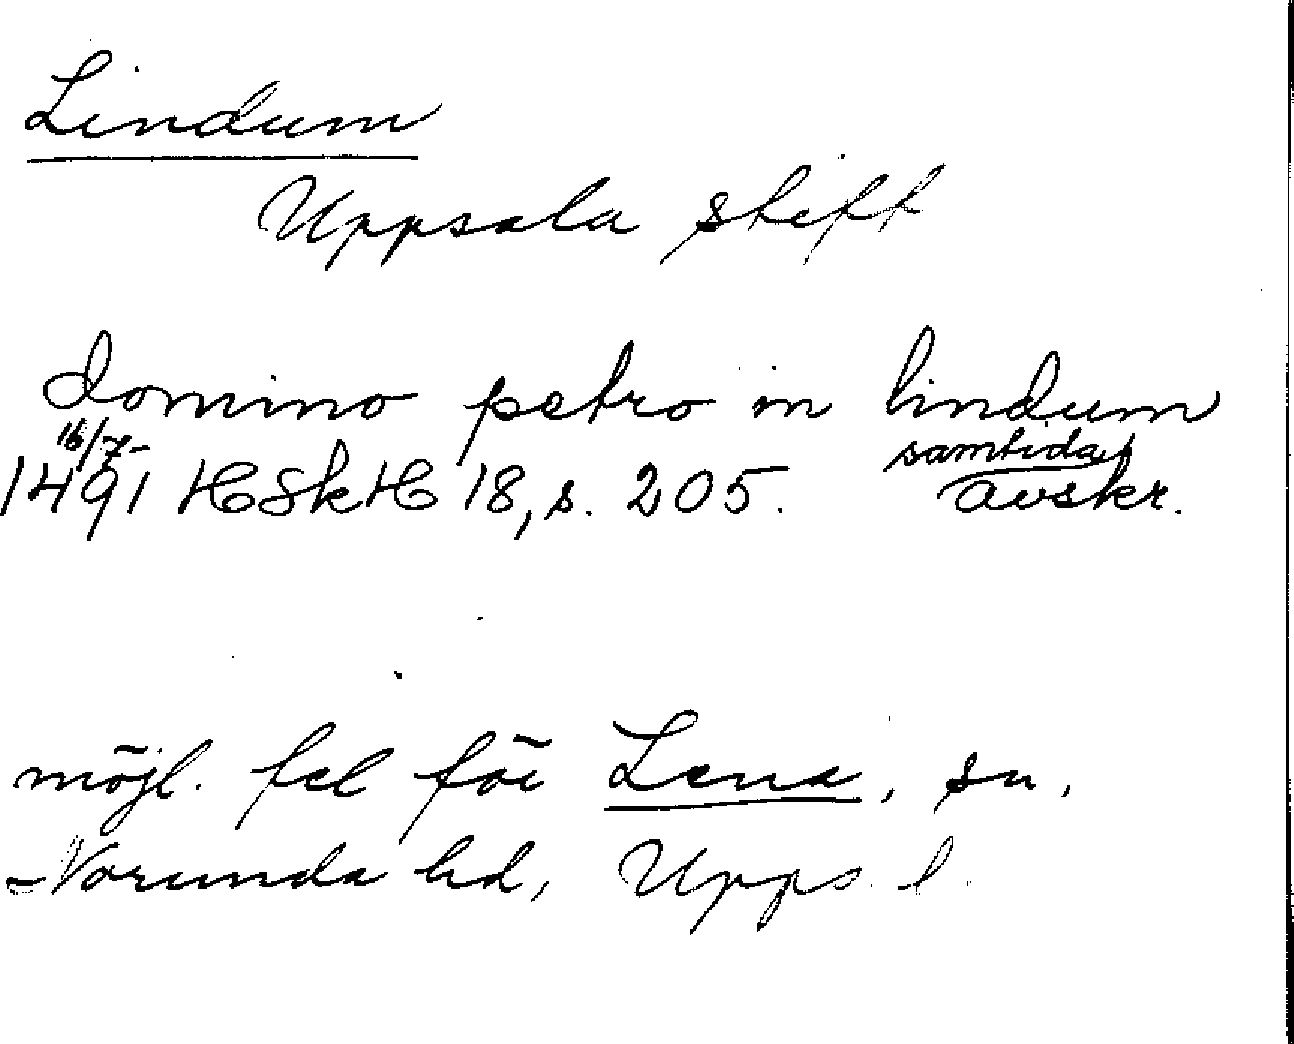 Lindum
Uppsala stift
domino petro in lindum
16/7
1491 HSkH 18, s. 205. samtida avskr.
möjl. fel för Lena, sn,
Norunda hd, Upps. l.